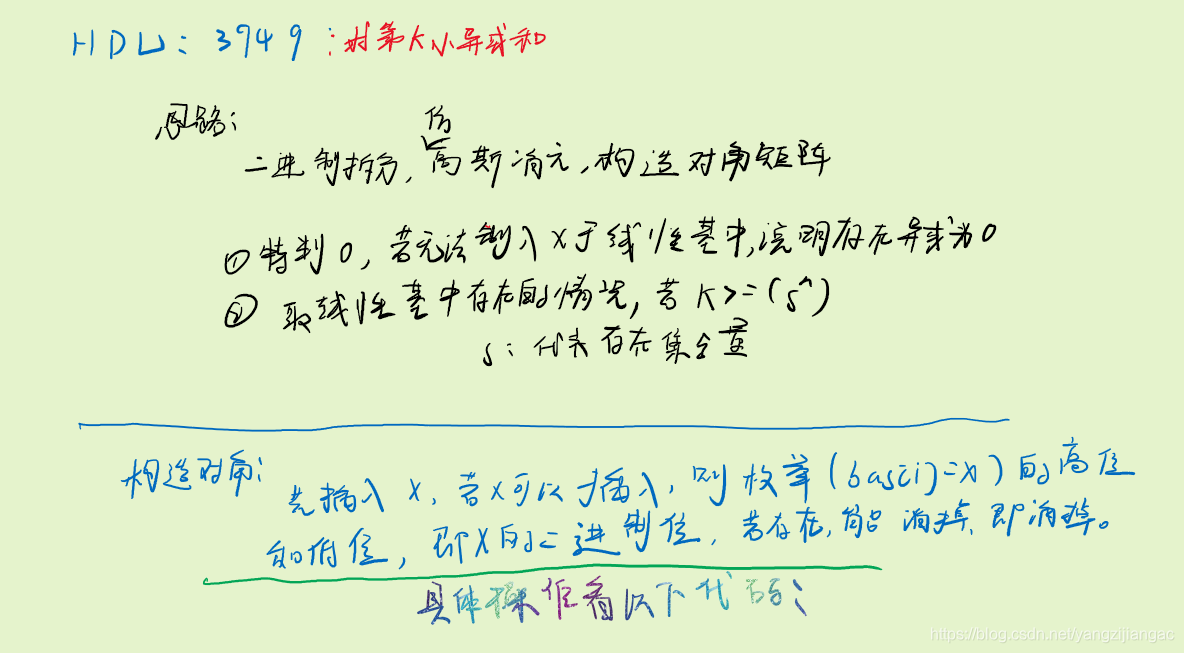 HDU: 3949 : 求第K小异或和
思路:
仿
二进制拆分, 高斯消元, 构造对角矩阵
① 特判0, 若无法插入X于线性基中, 说明存在异或为0
② 取线性基中存在的情况, 若 K>=(s^)
s: 代表存在集合量
构造对角:
先插入 X, 若X可以插入, 则枚举(bas[i]=x)的高位
和低位, 即X的二进制位, 若存在, 能消掉, 即消掉。
具体操作看以下代码:
https://blog.csdn.net/yangzijiangac